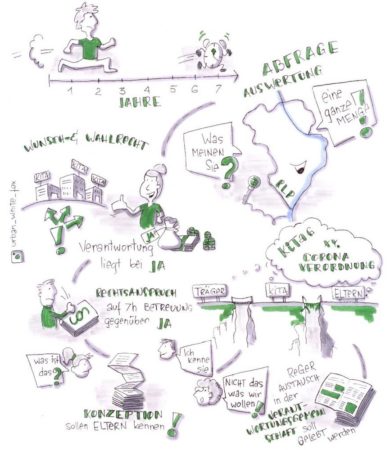 1 2 3 4 5 6 7
JAHRE
ABFRAGE
AUSWERTUNG
eine
ganze
MENGE!
Was
meinen
Sie?
RLP
WUNSCH- & WAHLRECHT
KITA
KITA
KITA
JA
Verantwortung
liegt bei JA
KITAG
vs.
CORONA
VERORDNUNG
TRÄGER
KITA
ELTERN
RECHTSANSPRUCH
auf 7h BETREUUNG
gegenüber JA
was ist
das?
Ich
kenne
sie
KONZEPTION
sollen ELTERN kennen!
NICHT das
was wir
wollen!
REGER
AUSTAUSCH
in der
VERANT-
WORTUNGSGEMEIN
SCHAFT soll
gelebt werden